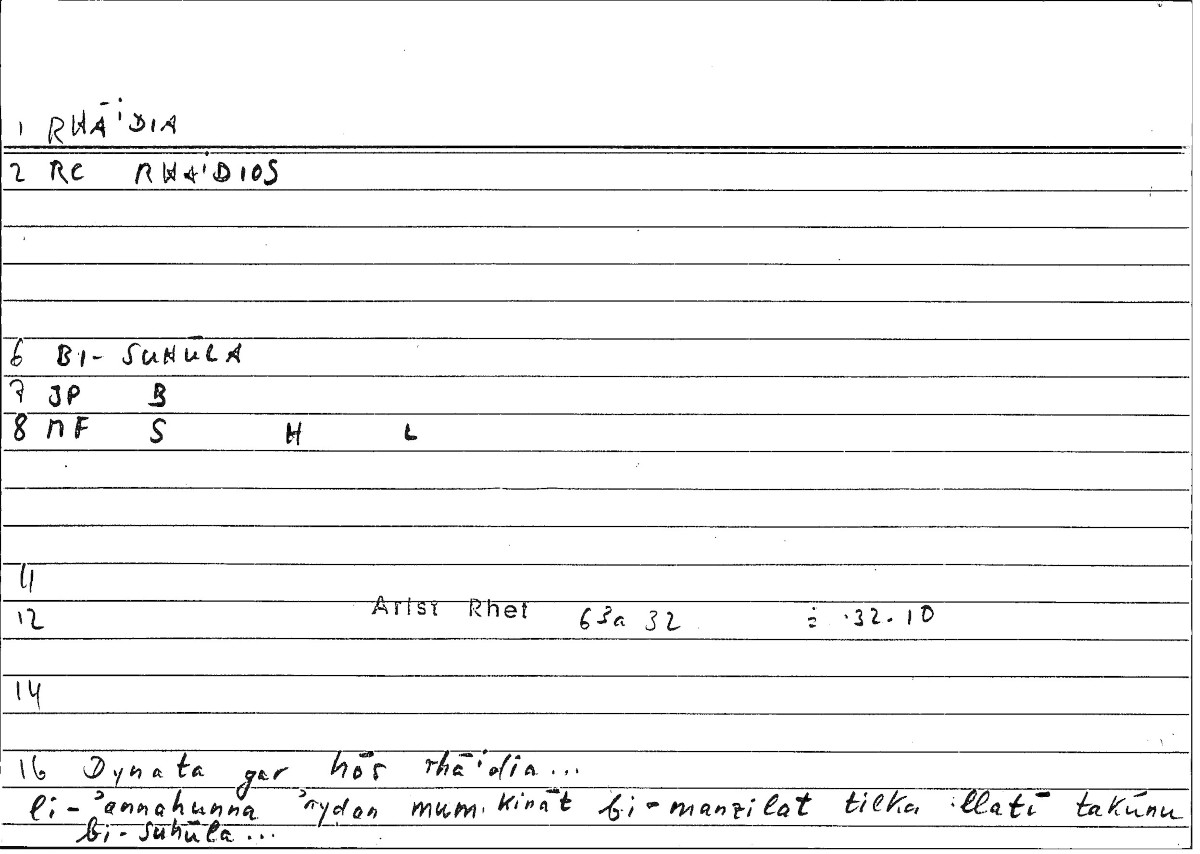 1 RHĀ'DIA
2 RC RHA'DIOS
6 BI-SUHŪLA
7 JP B
8 MF S H L
11
12 Arist Rhet 63a 32 = 32.10
14
16 Dynata gar hōs rhā'dia...
li-'annahunna 'aydan mumkināt bi-manzilat tilka llatī takūnu
bi-suhūla...